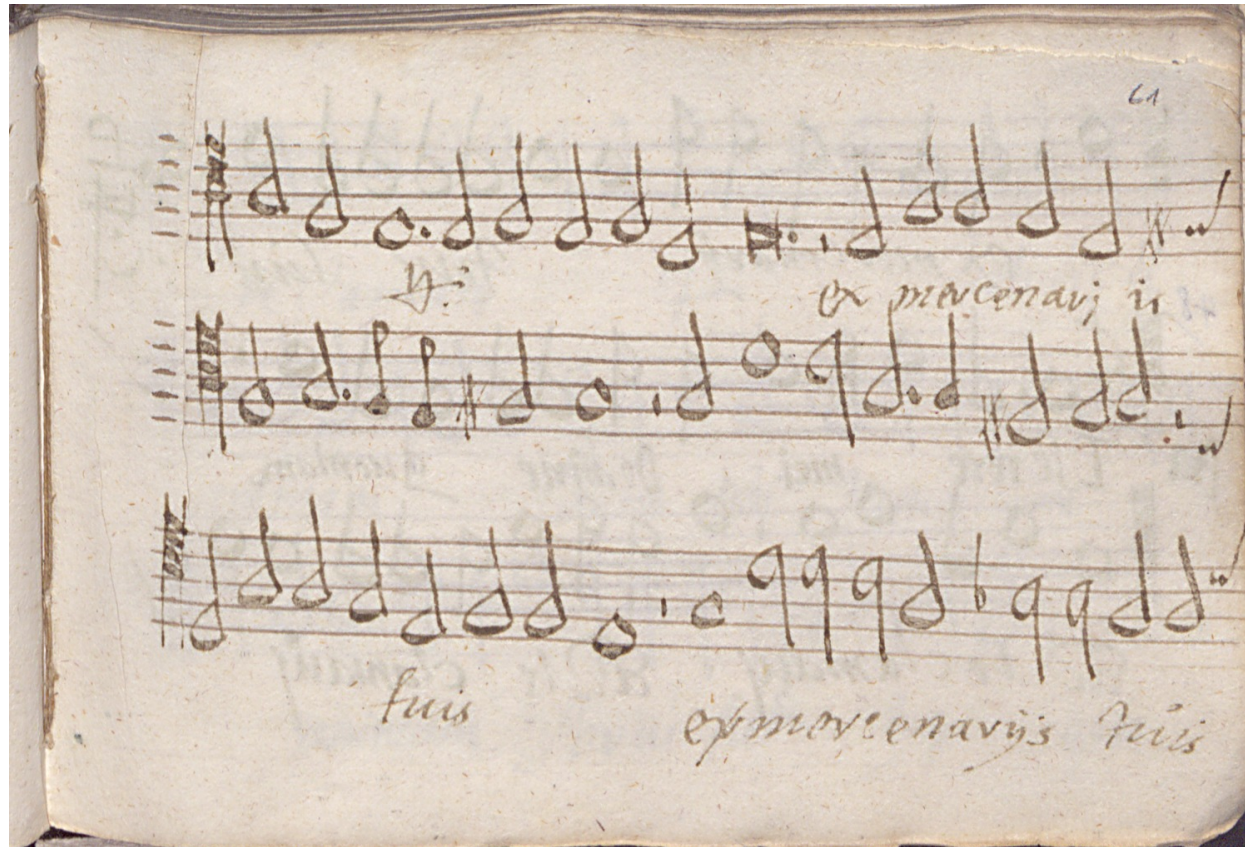 61
ij.
ex mercenarij ij
tuis
ex mercenarijs tuis